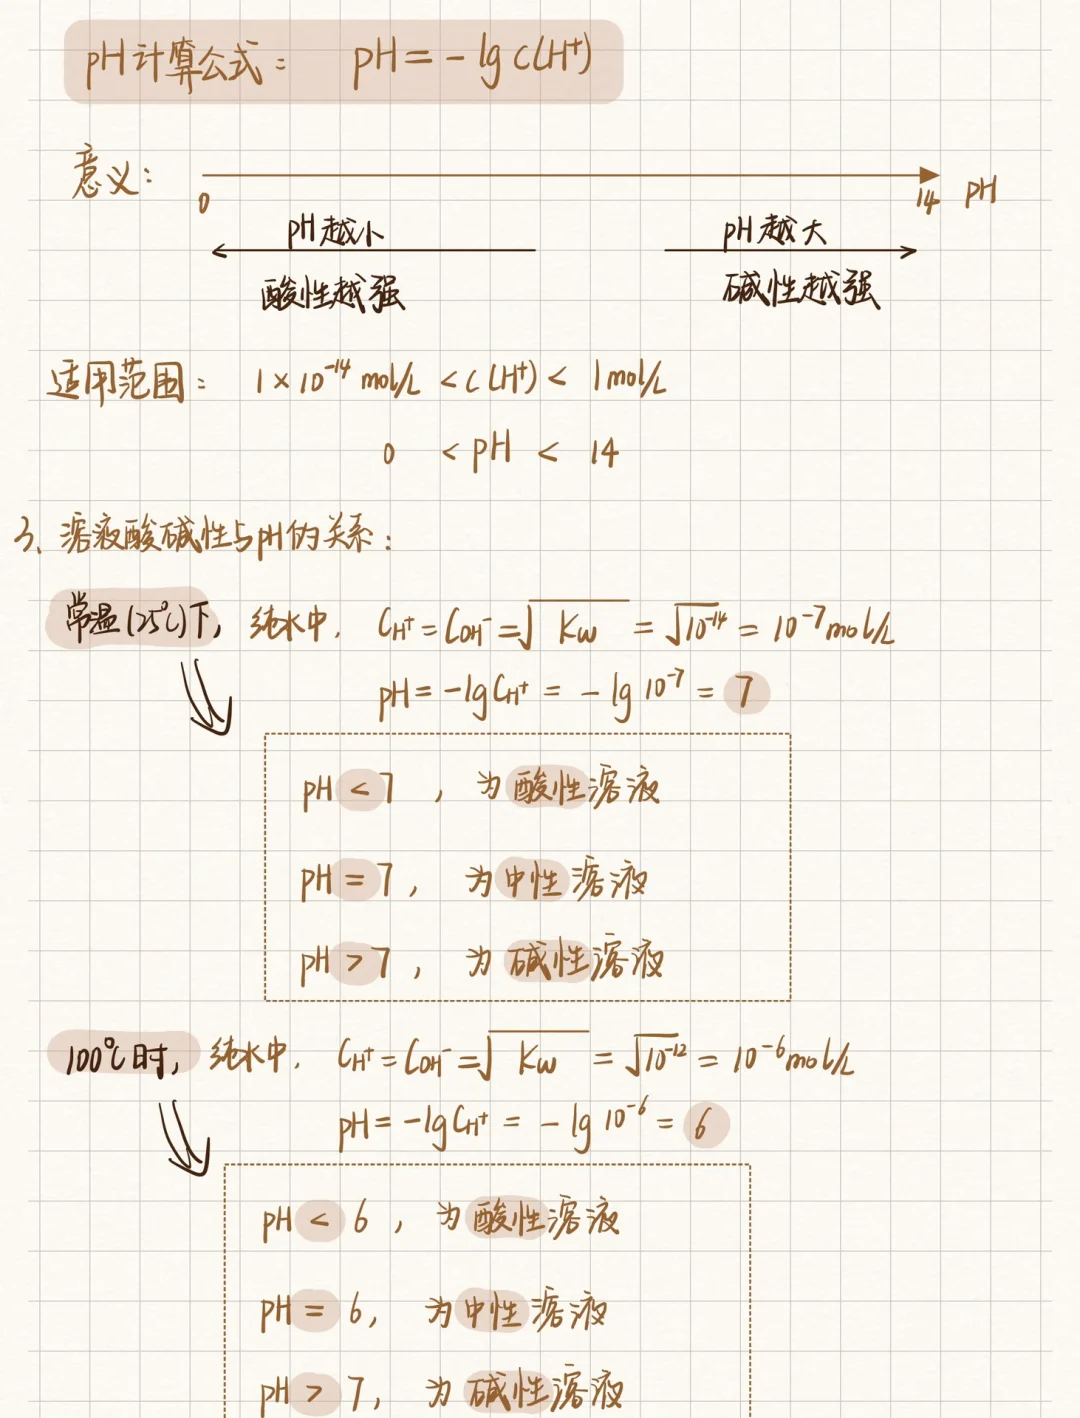 pH计算公式: pH = - lg c(H⁺)
意义:
0 14 pH
pH越小 pH越大
酸性越强 碱性越强
适用范围: 1 × 10⁻¹⁴ mol/L < c(H⁺) < 1mol/L
0 < pH < 14
3、溶液酸碱性与pH的关系:
常温(25℃)下, 纯水中, CH⁺ = COH⁻ = √Kw = √10⁻¹⁴ = 10⁻⁷ mol/L
pH = -lg CH⁺ = - lg 10⁻⁷ = 7
pH < 7 , 为酸性溶液
pH = 7 , 为中性溶液
pH > 7 , 为碱性溶液
100℃时, 纯水中, CH⁺ = COH⁻ = √Kw = √10⁻¹² = 10⁻⁶ mol/L
pH = -lg CH⁺ = - lg 10⁻⁶ = 6
pH < 6 , 为酸性溶液
pH = 6 , 为中性溶液
pH > 7 , 为碱性溶液